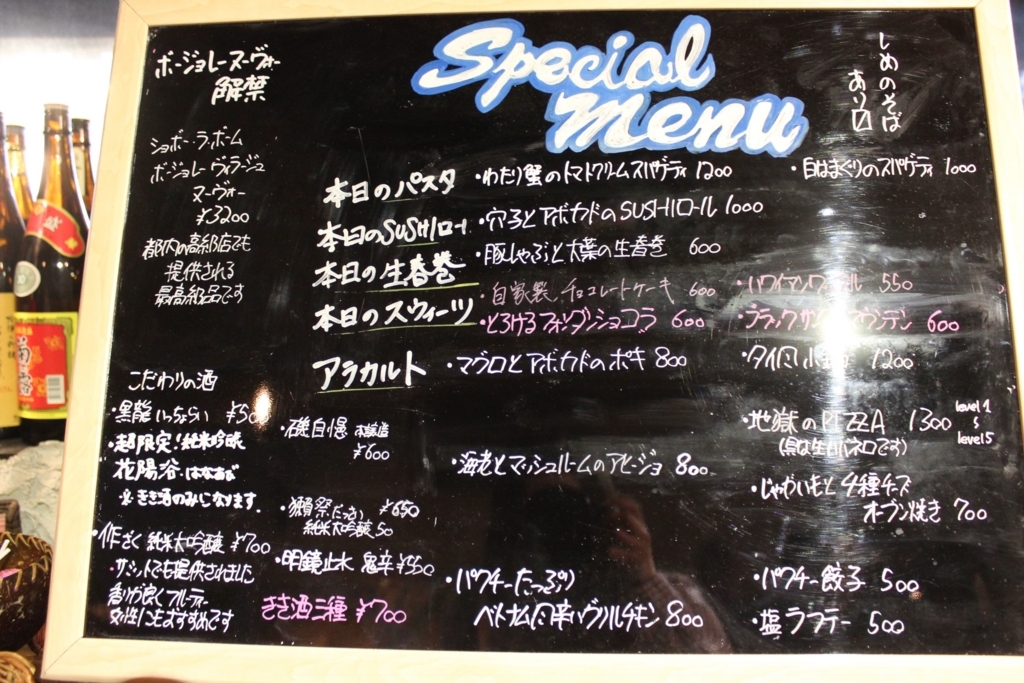 Special
Menu
しめのそば
あり〼
ボージョレーヌーヴォー
解禁
ショボー・ラ・ボーム
ボジョレーヴィラージュ
ヌーヴォー
¥3200
都内の高級店でも
提供される
最高級品です
本日のパスタ
・わたり蟹のトマトクリームスパゲティ 1200
・白はまぐりのスパゲティ 1000
本日のSUSHIロール
・穴子とアボカドのSUSHIロール 1000
本日の生春巻
・豚しゃぶと大葉の生春巻 600
本日のスウィーツ
・自家製チョコレートケーキ 600
・ハワイアンワッフル 550
・とろけるフォンダンショコラ 600
・ブラックサンダーマウンテン 600
アラカルト
・マグロとアボカドのポキ 800
1200
・地獄のPIZZA 1300
level 1
〜
level 5
・海老とマッシュルームのアヒージョ 800
・じゃがいもと4種チーズ
オーブン焼き 700
・パクチーたっぷり
ベトナム風 チキン 800
・パクチー餃子 500
・塩ラフテー 500
こだわりの酒
・黒龍 いっちょらい ¥500
・超限定!純米吟醸
花陽浴・はなあび
※きき酒のみになります。
・作 ざく 純米大吟醸 ¥700
サミットでも提供されました
香りが良くフルーティー
女性にもおすすめです
・磯自慢 本醸造
¥600
・獺祭 だっさい ¥650
純米大吟醸50
・明鏡止水 鬼辛 ¥550
きき酒三種 ¥700